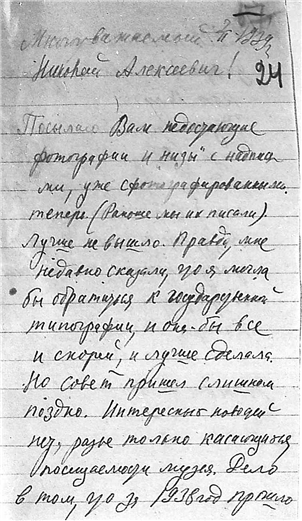 Многоуважаемый
Николай Алексеевич!
24
Посылаю Вам недостающие
фотографии и низы с надпися
ми, уже сфотографированными
теперь. (Раньше мы их писали).
Лучше не вышло. Правда, мне
недавно сказали, что я могла
бы обратиться к государственной
типографии, и она-бы все
и скорей, и лучше сделала.
Но совет пришел слишком
поздно. Интересных новостей
нет, разве только касающиеся
посещаемости музея. Дело
в том, что за 1938 год прошло